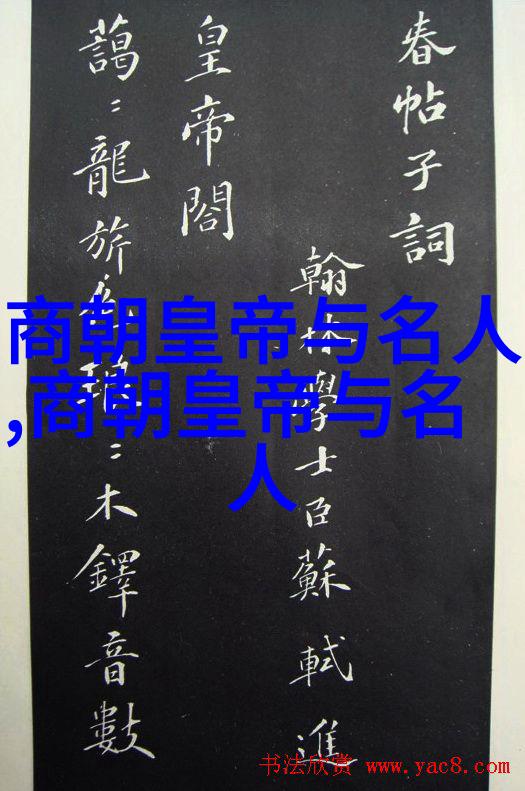 春帖子詞
翰林學士臣蘇軾進
皇帝閤
藹〻龍旂色琅〻木鐸音數
商朝皇帝与名人
,商朝皇帝与名
人
书法欣赏 www.yac8.com